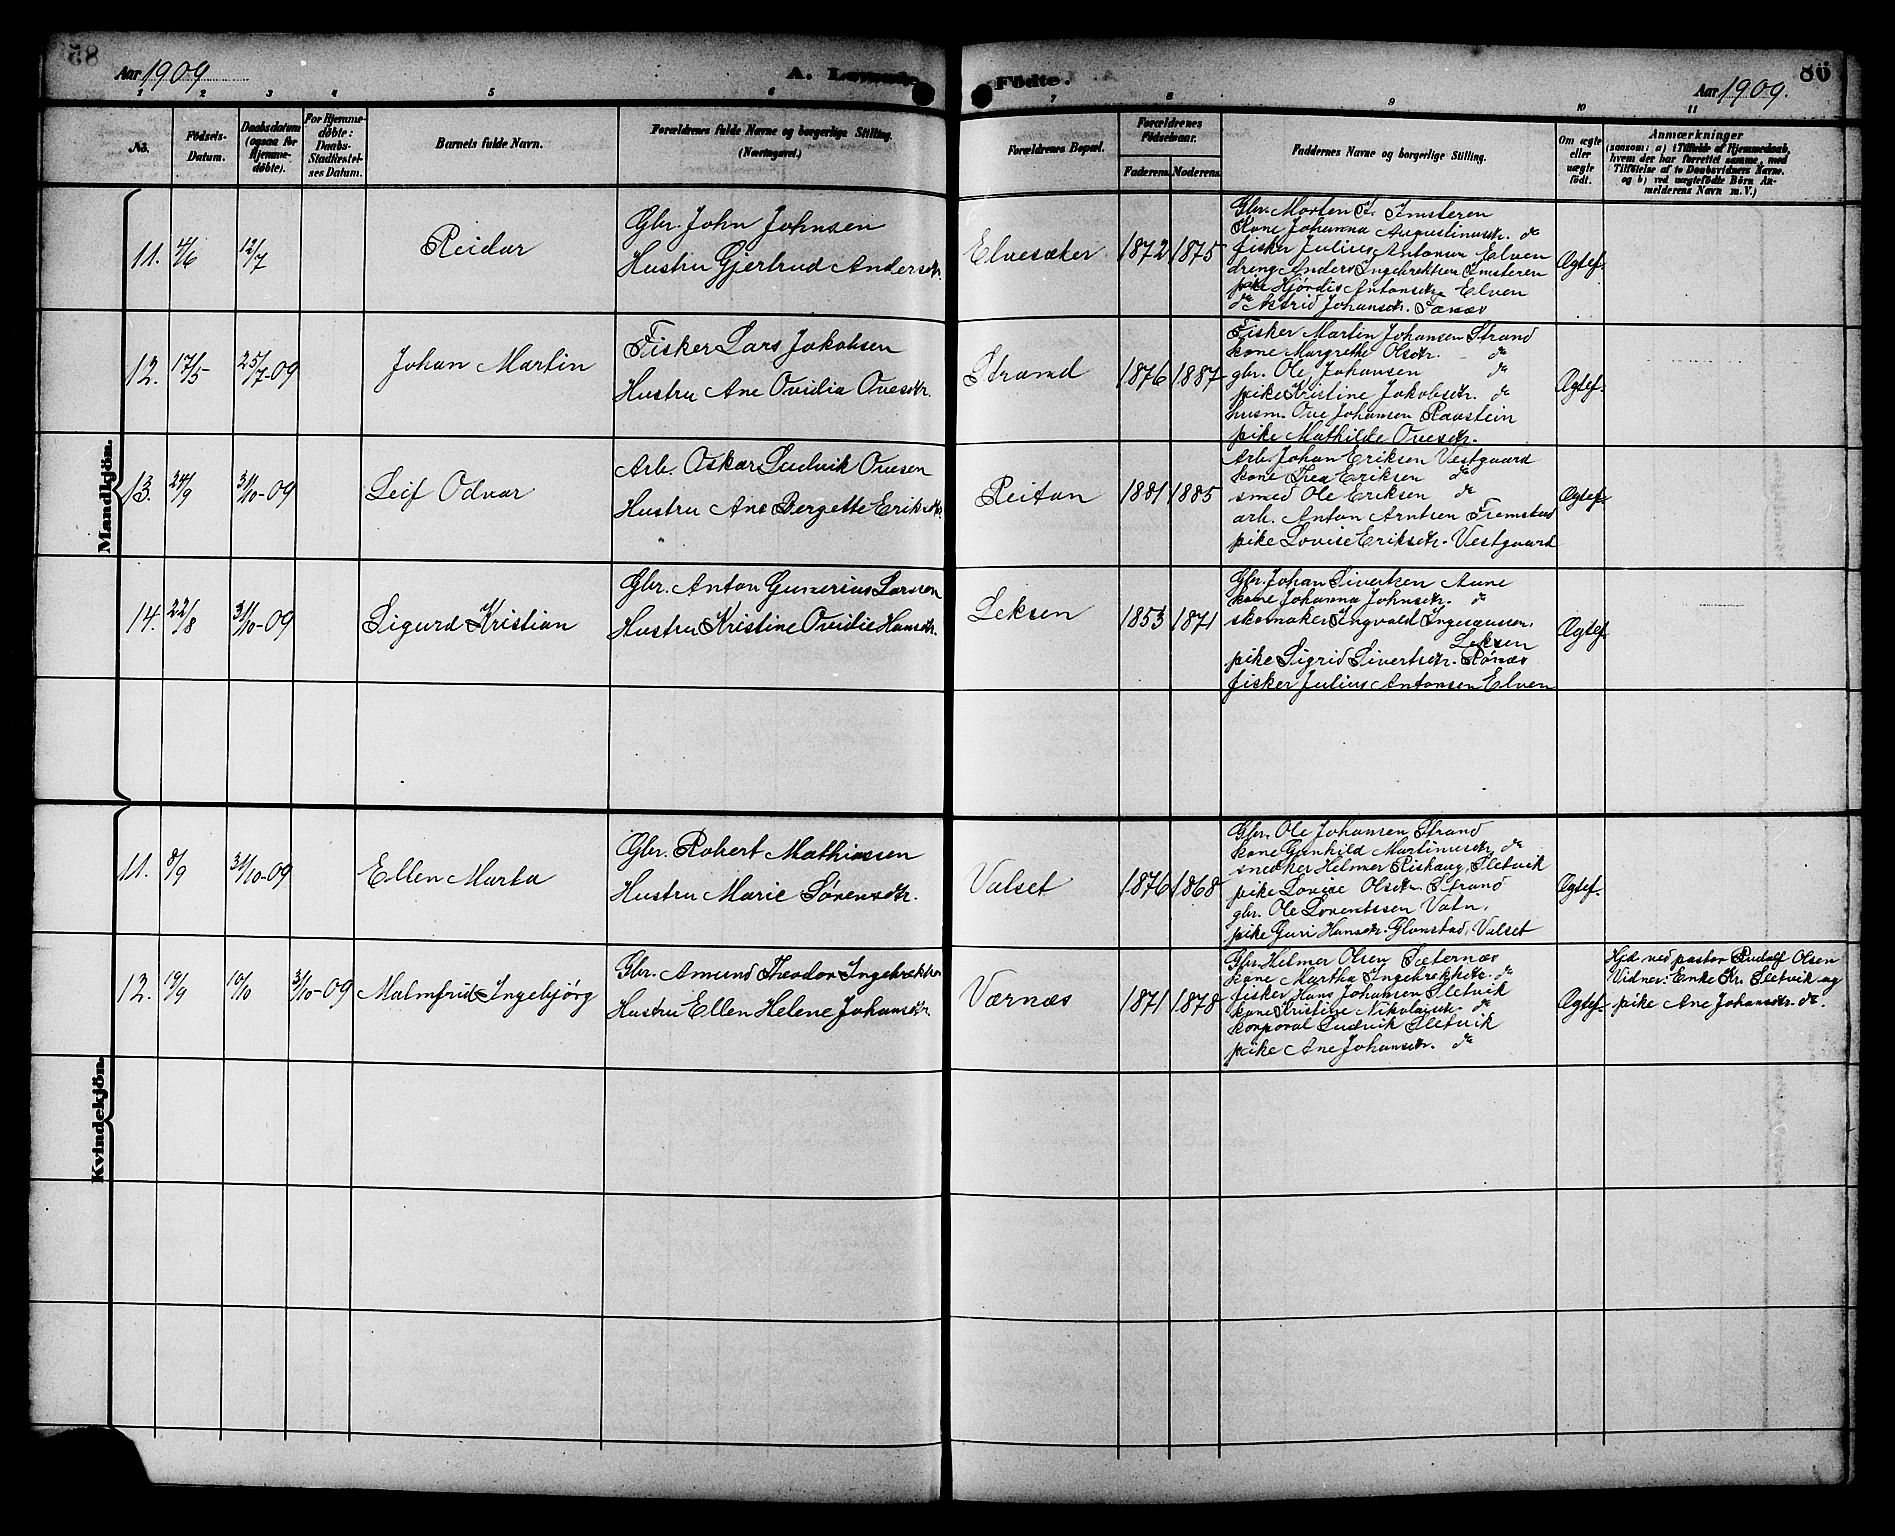 Aar 1909
A. Levende
Födte.
Aar 1909.
86
1 2 3 4 5 6 7 8 9 10 11
No.
Födsels-
Datum.
Daabsdatum
(ogsaa for
Hjemme-
døbte).
For Hjemme-
døbte:
Daabs-
Stadfæstel-
ses Datum.
Barnets fulde Navn.
Forældrenes fulde Navne og borgerlige Stilling.
(Næringsvei.)
Forældrenes Bopæl.
Forældrenes
Födselsaar.
Faderens. Moderens.
Faddernes Navne og borgerlige Stilling.
Om ægte
eller
uægte
födt.
Anmærkninger
(saasom: a) i Tilfælde af Hjemmedaab,
hvem der har forrettet samme, med
Tilföielse af to Daabsvidners Navne.
og b) ved uægtefödte Börn An-
melderens Navn m. V.)
Mandkjön.
11. 4/6 12/7 Reidar
Gbr. John Johnsen
Hustru Gjertrud Andersdtr.
Elvesæter 1872 1875
Gbr. Morten Imsteren
Kone Johanna Augustinusdtr. do
fisker Julius Antonsen Elven
dreng Anders Ingebrektsen Imsteren
pike Hjördis Antonsdtr. Elven
do Astrid Johansdtr.
Ægtef.
12. 17/5 25/7-09 Johan Martin
Fisker Lars Jakobsen
Hustru Ane Ovidia Ovesdtr.
Strand 1876 1887
Fisker Martin Johansen Strand
kone Margrethe Olsdtr. do
gbr. Ole Johansen do
pike Kristine Jakobsdtr. do
husm. Ove Johansen Ravstein
pike Mathilde Ovesdtr.
Ægtef.
13. 24/9 31/10-09 Leif Odvar
Arb. Oskar Ludvik Ovesen
Hustru Ane Bergette Eriksdtr.
Reitan 1881 1885
Arb. Johan Eriksen Vestgaard
kone Thea Eriksen do
smed Ole Eriksen do
arb. Anton Arntsen Fremstad
pike Lovise Eriksdtr. Vestgaard
Ægtef.
14. 22/8 31/10-09 Sigurd Kristian
Gbr. Anton Gunerius Larsen
Hustru Kristine Ovidie Hansdtr.
Leksen 1853 1871
Gbr. Johan Sivertsen Aune
kone Johanna Johnsdtr. do
skomaker Ingvald Ingebrigtsen,
Leksen
pike Sigrid Sivertsdtr. Rönæs
fisker Julius Antonsen Elven
Ægtef.
Kvindekjön.
11. 8/9 31/10-09 Ellen Marta
Gbr. Robert Mathiassen
Hustru Marie Sørensdtr.
Valset 1876 1868
Gbr. Ole Johansen Strand
kone Gunhild Martinusdtr. do
snedker Helmer Riskaug, Sletvik
pike Lovise Olsdtr. Strand
gbr. Ole Lorentssen Vatn,
pike Guri Hansdtr. Glomstad, Valset
Ægtef.
12. 19/9 10/10 31/10-09 Malmfrid Ingebjörg
Gbr. Amund Theodor Ingebrektsen
Hustru Ellen Helene Johansdtr
Værnæs 1871 1878
Gbr. Helmer Olsen Sæternæs
kone Martha Ingebrektsdtr. do
fisker Hans Johansen Sletvik
kone Kristine Nikolaisdtr. do
korporal Ludvik Sletvik
pike Ane Johansdtr. do
Ægtef.
Hjd. ved pastor Rudolf Olsen
Vidner: Enke Kr. Sletvik og
pike Ane Johansdtr. do.